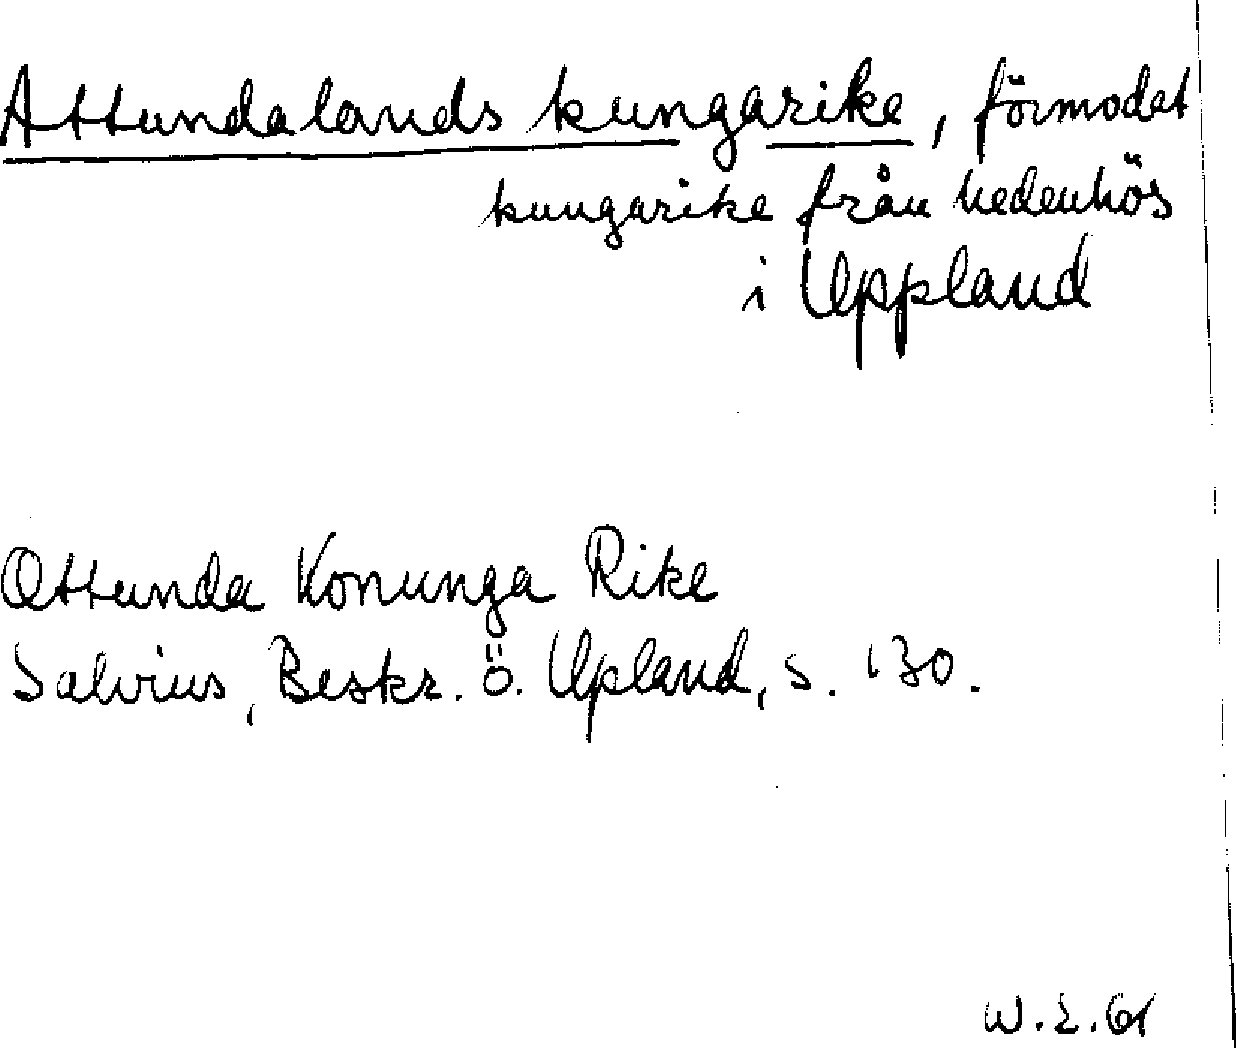 Attundalands kungarike, förmodat
kungarike från hedenhös
i Uppland
Attunda Konunga Rike
Salvius, Beskr. ö. Upland, s. 130.